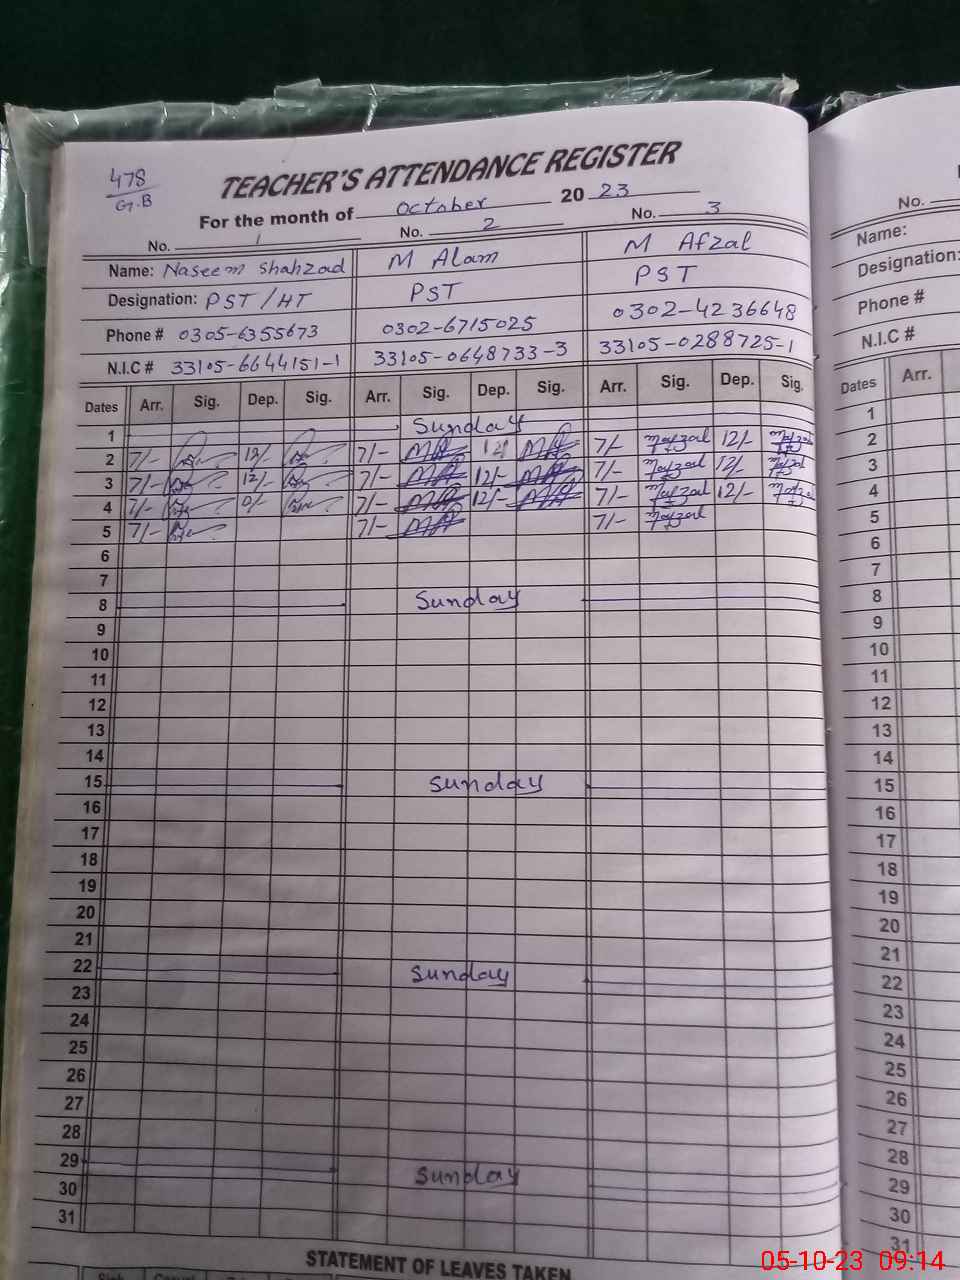 478
G.B
TEACHER'S ATTENDANCE REGISTER
For the month of October 2023
No. 1 No. 2 No. 3
Name: Naseem Shahzad M Alam M Afzal
Designation: PST/HT PST PST
Phone # 0305-6355673 0302-6715025 0302-4236648
N.I.C # 33105-6644151-1 33105-0648733-3 33105-0288725-1
Dates Arr. Sig. Dep. Sig. Arr. Sig. Dep. Sig. Arr. Sig. Dep. Sig.
1 Sunday
2 7/- 12/- 7/- 12/- 7/- Mafzal 12/- Mafzal
3 7/- 12/- 7/- 12/- 7/- Mafzal 12/- Mafzal
4 7/- 7/- 12/- 7/- Mafzal 12/- Mafzal
5 7/- 7/- 7/- Mafzal
6
7
8 Sunday
9
10
11
12
13
14
15 Sunday
16
17
18
19
20
21
22 Sunday
23
24
25
26
27
28
29 Sunday
30
31
STATEMENT OF LEAVES TAKEN
No.
Name:
Designation:
Phone #
N.I.C #
Dates Arr.
1
2
3
4
5
6
7
8
9
10
11
12
13
14
15
16
17
18
19
20
21
22
23
24
25
26
27
28
29
30
31
05-10-23 09:14